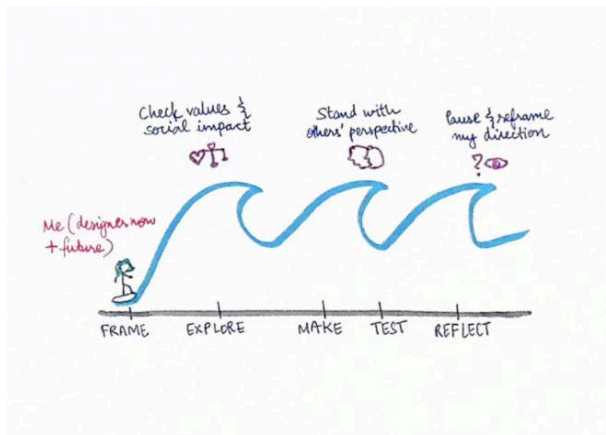 Check values &
social impact
Stand with
others' perspective
Pause & reframe
my direction
?
Me (designer now
+ future)
FRAME EXPLORE MAKE TEST REFLECT